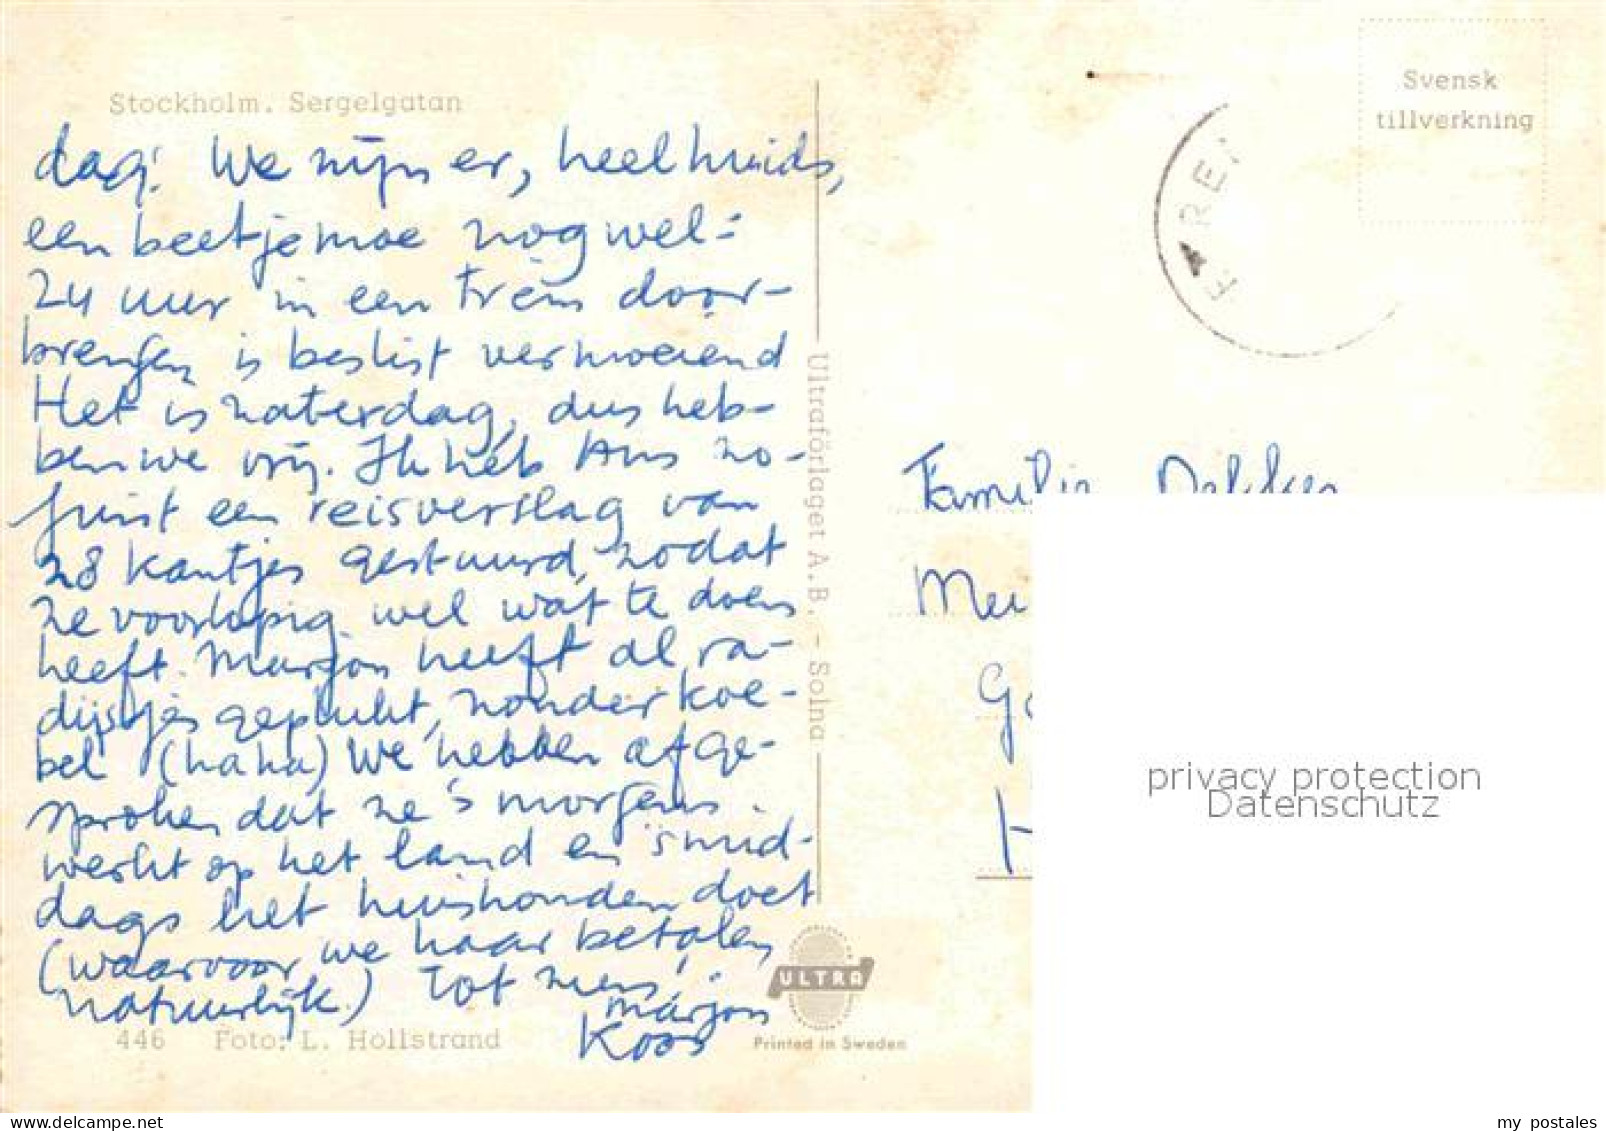 Stockholm. Sergelgatan
dag! We zijn er, heelhuids,
een beetje moe nog wel:
24 uur in een trein door-
brengen is beslist vermoeiend
Het is zaterdag, dus heb-
ben we vrij. Ik heb Ans zo-
juist een reisverslag van
28 kantjes gestuurd, zodat
ze voorlopig wel wat te doen
heeft. Marjon heeft al ra-
dijsjes geplukt, zonder koe-
bel (haha) We hebben afge-
sproken dat ze 's morgens
werkt op het land en 's mid-
dags het huishouden doet
(waarvoor we haar betalen
natuurlijk.) Tot ziens,
Marjon
Koos
446 Foto: L. Hollstrand
Ultraförlaget A.B. - Solna
ULTRA
Printed in Sweden
Svensk
tillverkning
Familie Dekker
privacy protection
Datenschutz
my postales